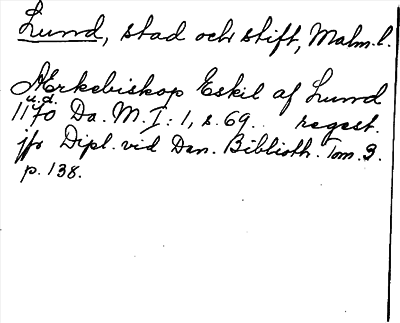 Lund, stad och stift, Malm.l.
Ærkebiskop Eskil af Lund
u.d.
1170 Da. M. I: 1, s. 69. regest.
jfr Dipl. vid Dan. Biblioth. Tom. 3.
p. 138.